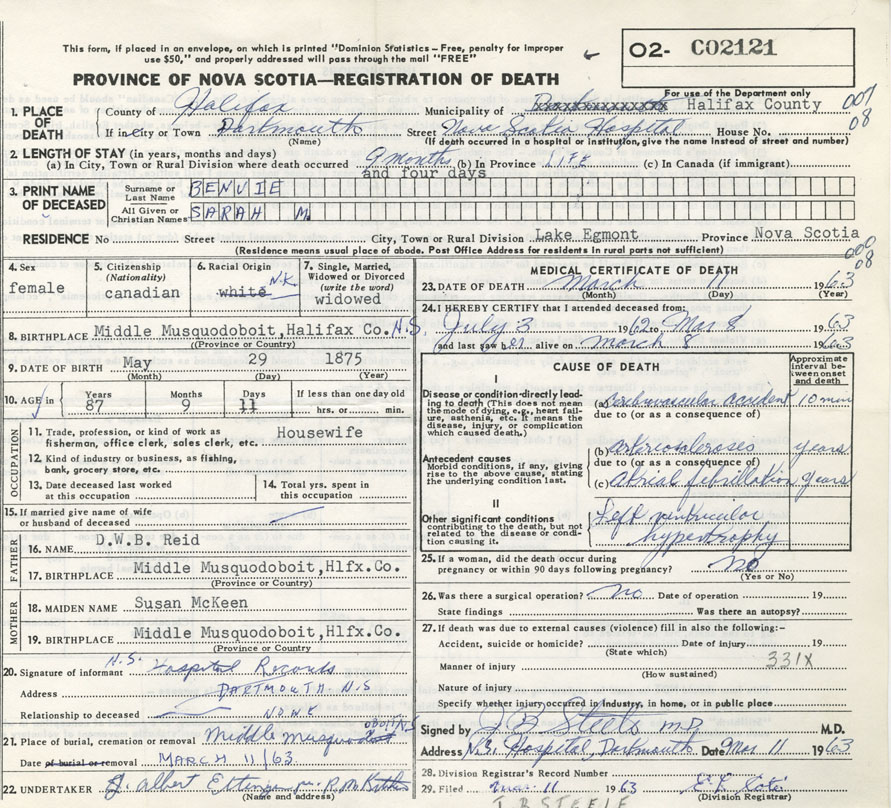 This form, if placed in an envelope, on which is printed "Dominion Statistics – Free, penalty for improper
use $50," and properly addressed will pass through the mail "FREE"
O2- C02121
For use of the Department only
PROVINCE OF NOVA SCOTIA—REGISTRATION OF DEATH
1. PLACE OF DEATH
County of Halifax Municipality of xxxxxxxxxxxxx Halifax County 007
If in City or Town Dartmouth Street Nova Scotia Hospital House No. 08
(Name) (If death occurred in a hospital or institution, give the name instead of street and number)
2. LENGTH OF STAY (in years, months and days)
(a) In City, Town or Rural Division where death occurred 9 months (b) In Province LIFE (c) In Canada (if immigrant)
and four days
3. PRINT NAME OF DECEASED
Surname or Last Name BENVIE
All Given or Christian Names SARAH M.
RESIDENCE No Street City, Town or Rural Division Lake Egmont Province Nova Scotia
(Residence means usual place of abode. Post Office Address for residents in rural parts not sufficient) 000
08
4. Sex
female
5. Citizenship
(Nationality)
canadian
6. Racial Origin
white N.K.
7. Single, Married, Widowed or Divorced
(write the word)
widowed
8. BIRTHPLACE Middle Musquodoboit, Halifax Co. N.S.
(Province or Country)
9. DATE OF BIRTH May 29 1875
(Month) (Day) (Year)
10. AGE in
Years Months Days If less than one day old
87 9 11 hrs. or min.
OCCUPATION
11. Trade, profession, or kind of work as Housewife
fisherman, office clerk, sales clerk, etc.
12. Kind of industry or business, as fishing,
bank, grocery store, etc.
13. Date deceased last worked
at this occupation
14. Total yrs. spent in
this occupation
15. If married give name of wife
or husband of deceased
FATHER
16. NAME D.W.B. Reid
17. BIRTHPLACE Middle Musquodoboit, Hlfx.Co.
(Province or Country)
MOTHER
18. MAIDEN NAME Susan McKeen
19. BIRTHPLACE Middle Musquodoboit, Hlfx.Co.
(Province or Country)
20. Signature of informant N.S. Hospital Records
Address DARTMOUTH. N.S
Relationship to deceased NONE
21. Place of burial, cremation or removal Middle Musquodoboit N.S
Date of burial or removal MARCH 11/63
22. UNDERTAKER J. Albert Ettinger
(Name and address)
MEDICAL CERTIFICATE OF DEATH
23. DATE OF DEATH March 11 1963
(Month) (Day) (Year)
24. I HEREBY CERTIFY that I attended deceased from:
July 3 1962 to Mar 8 1963
and last saw her alive on March 8 1963
CAUSE OF DEATH
Approximate interval between onset and death
I
Disease or condition directly leading to death (This does not mean the mode of dying, e.g., heart failure, asthenia, etc. It means the disease, injury, or complication which caused death.)
(a) Cerebrovascular accident 10 min
due to (or as a consequence of)
Antecedent causes
Morbid conditions, if any, giving rise to the above cause, stating the underlying condition last.
(b) arteriosclerosis years
due to (or as a consequence of)
(c) atrial fibrillation years
II
Other significant conditions
contributing to the death, but not related to the disease or condition causing it.
Left ventricular
hypertrophy
25. If a woman, did the death occur during
pregnancy or within 90 days following pregnancy? no
(Yes or No)
26. Was there a surgical operation? no Date of operation 19
State findings Was there an autopsy?
27. If death was due to external causes (violence) fill in also the following:–
Accident, suicide or homicide? Date of injury 19
(State which) 331X
Manner of injury
(How sustained)
Nature of injury
Specify whether injury occurred in industry, in home, or in public place
Signed by J B Steele MD M.D.
Address N.S. Hospital, Dartmouth Date Mar 11 1963
28. Division Registrar's Record Number
29. Filed Mar. 11 1963
(Division Registrar)
J B STEELE